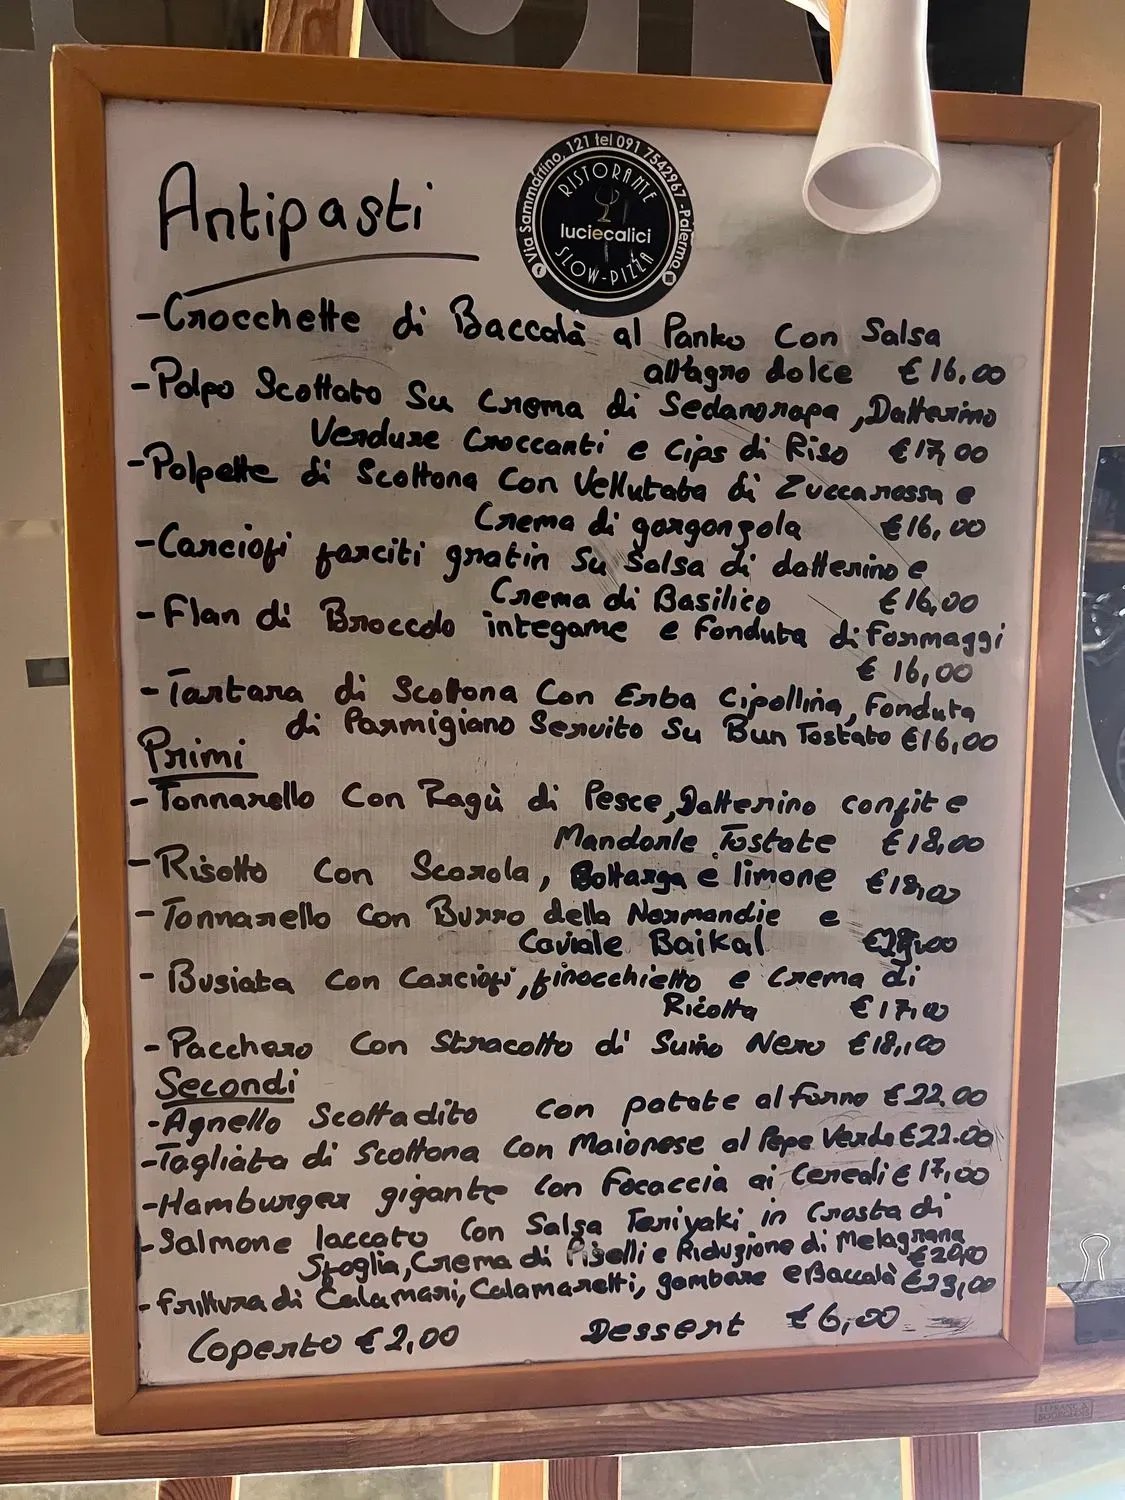 Antipasti
Via Sammartino, 121 tel 091 7542967 - Palermo
RISTORANTE
luciecalici
SLOW-PIZZA
- Crocchette di Baccalà al Panko Con Salsa
all'agro dolce € 16,00
- Polpo Scottato Su Crema di Sedanorapa, Datterino
Verdure Croccanti e Cips di Riso € 17,00
- Polpette di Scottona Con Vellutata di Zuccarossa e
Crema di gorgonzola € 16,00
- Carciofi farciti gratin Su Salsa di datterino e
Crema di Basilico € 16,00
- Flan di Broccolo integame e fonduta di Formaggi
€ 16,00
- Tartara di Scottona Con Erba Cipollina, Fonduta
di Parmigiano Servito Su Bun Tostato €16,00
Primi
- Tonnarello Con Ragù di Pesce, Datterino confit e
Mandorle Tostate €18,00
- Risotto Con Scarola, Bottarga e limone €18,00
- Tonnarello Con Burro della Normandie e
Caviale Baikal
- Busiata Con Carciofi, finocchietto e Crema di
Ricotta €17,00
- Pacchero Con Stracotto di Suino Nero €18,00
Secondi
- Agnello Scottadito con patate al forno €22.00
- Tagliata di Scottona Con Maionese al Pepe Verde €22.00
- Hamburger gigante Con focaccia ai Cereali € 17,00
- Salmone laccato Con Salsa Teriyaki in Crosta di
Sfoglia, Crema di Piselli e Riduzione di Melagrana €20,00
- frittura di Calamari, Calamaretti, gambere e Baccalà €23,00
Coperto € 2,00 Dessert € 6,00
LEFRANC &
BOURGEOIS